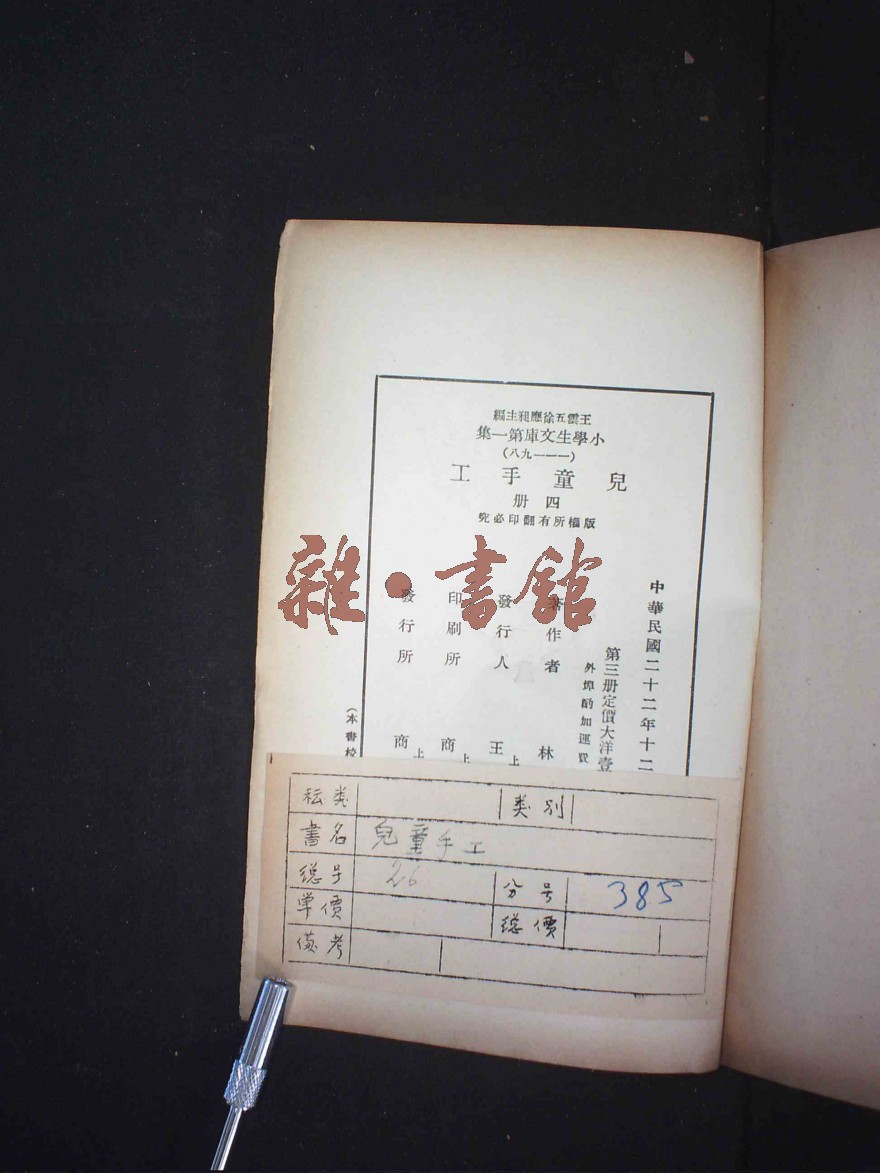 王雲五徐應昶主編
小學生文庫第一集
(一一一九八)
兒童手工
四册
版權所有翻印必究
中華民國二十二年十二
第三册定價大洋壹
外埠酌加運費
著作者 林
發行人 王 上
印刷所 商 上
發行所 商 上
(本書校
雜·書館
类別
書名 兒童手工
總号 26 分号 385
单價 總價
俻考